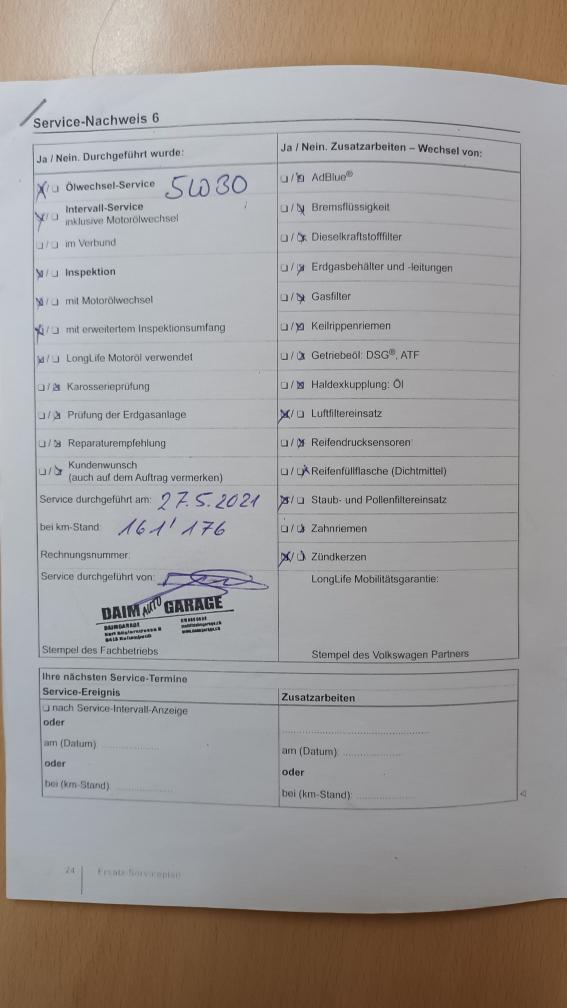 Service-Nachweis 6
Ja / Nein. Durchgeführt wurde:
❏/❏ Ölwechsel-Service 5W30
❏/❏ Intervall-Service
inklusive Motorölwechsel
❏/❏ im Verbund
❏/❏ Inspektion
❏/❏ mit Motorölwechsel
❏/❏ mit erweitertem Inspektionsumfang
❏/❏ LongLife Motoröl verwendet
❏/❏ Karosserieprüfung
❏/❏ Prüfung der Erdgasanlage
❏/❏ Reparaturempfehlung
❏/❏ Kundenwunsch
(auch auf dem Auftrag vermerken)
Service durchgeführt am: 27.5.2021
bei km-Stand: 161'176
Rechnungsnummer:
Service durchgeführt von:
DAIM AUTO GARAGE
DAIMGARAGE
Stempel des Fachbetriebs
Ja / Nein. Zusatzarbeiten – Wechsel von:
❏/❏ AdBlue®
❏/❏ Bremsflüssigkeit
❏/❏ Dieselkraftstofffilter
❏/❏ Erdgasbehälter und -leitungen
❏/❏ Gasfilter
❏/❏ Keilrippenriemen
❏/❏ Getriebeöl: DSG®, ATF
❏/❏ Haldexkupplung: Öl
❏/❏ Luftfiltereinsatz
❏/❏ Reifendrucksensoren
❏/❏ Reifenfüllflasche (Dichtmittel)
❏/❏ Staub- und Pollenfiltereinsatz
❏/❏ Zahnriemen
❏/❏ Zündkerzen
LongLife Mobilitätsgarantie:
Stempel des Volkswagen Partners
Ihre nächsten Service-Termine
Service-Ereignis
❏ nach Service-Intervall-Anzeige
oder
am (Datum):
oder
bei (km-Stand):
Zusatzarbeiten
am (Datum):
oder
bei (km-Stand):
24 Ersatz-Serviceplan